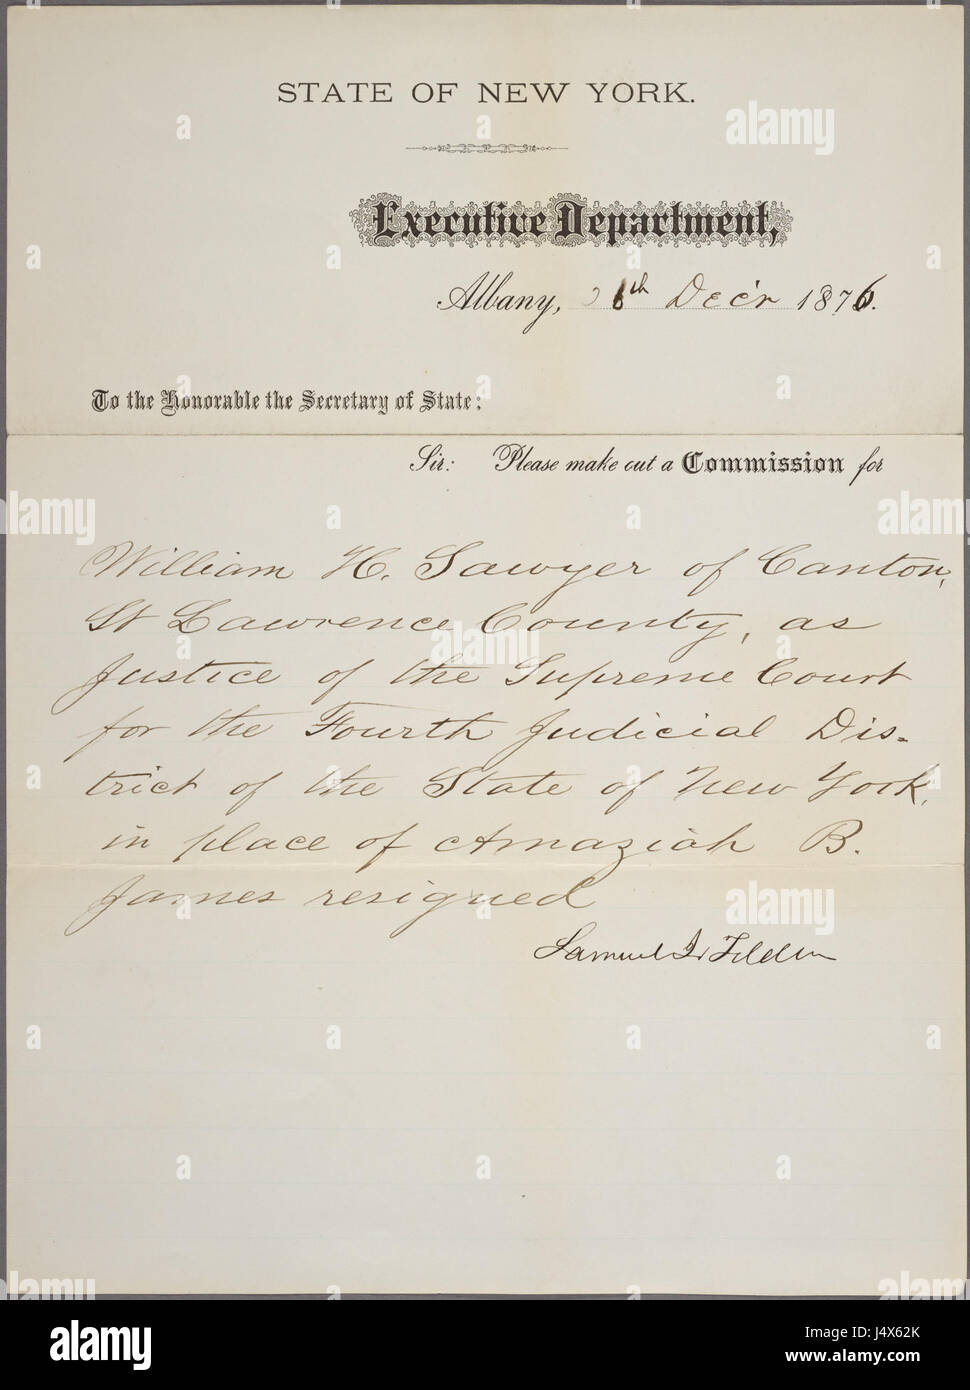 STATE OF NEW YORK.
Executive Department,
Albany, 26th Dec'r 1876.
To the Honorable the Secretary of State:
Sir: Please make out a Commission for
William H. Sawyer of Canton,
St Lawrence County, as
Justice of the Supreme Court
for the Fourth Judicial Dis-
trict of the State of New York,
in place of Amaziah B.
James resigned
Samuel J. Tilden
alamy stock photo
J4X62K
www.alamy.com